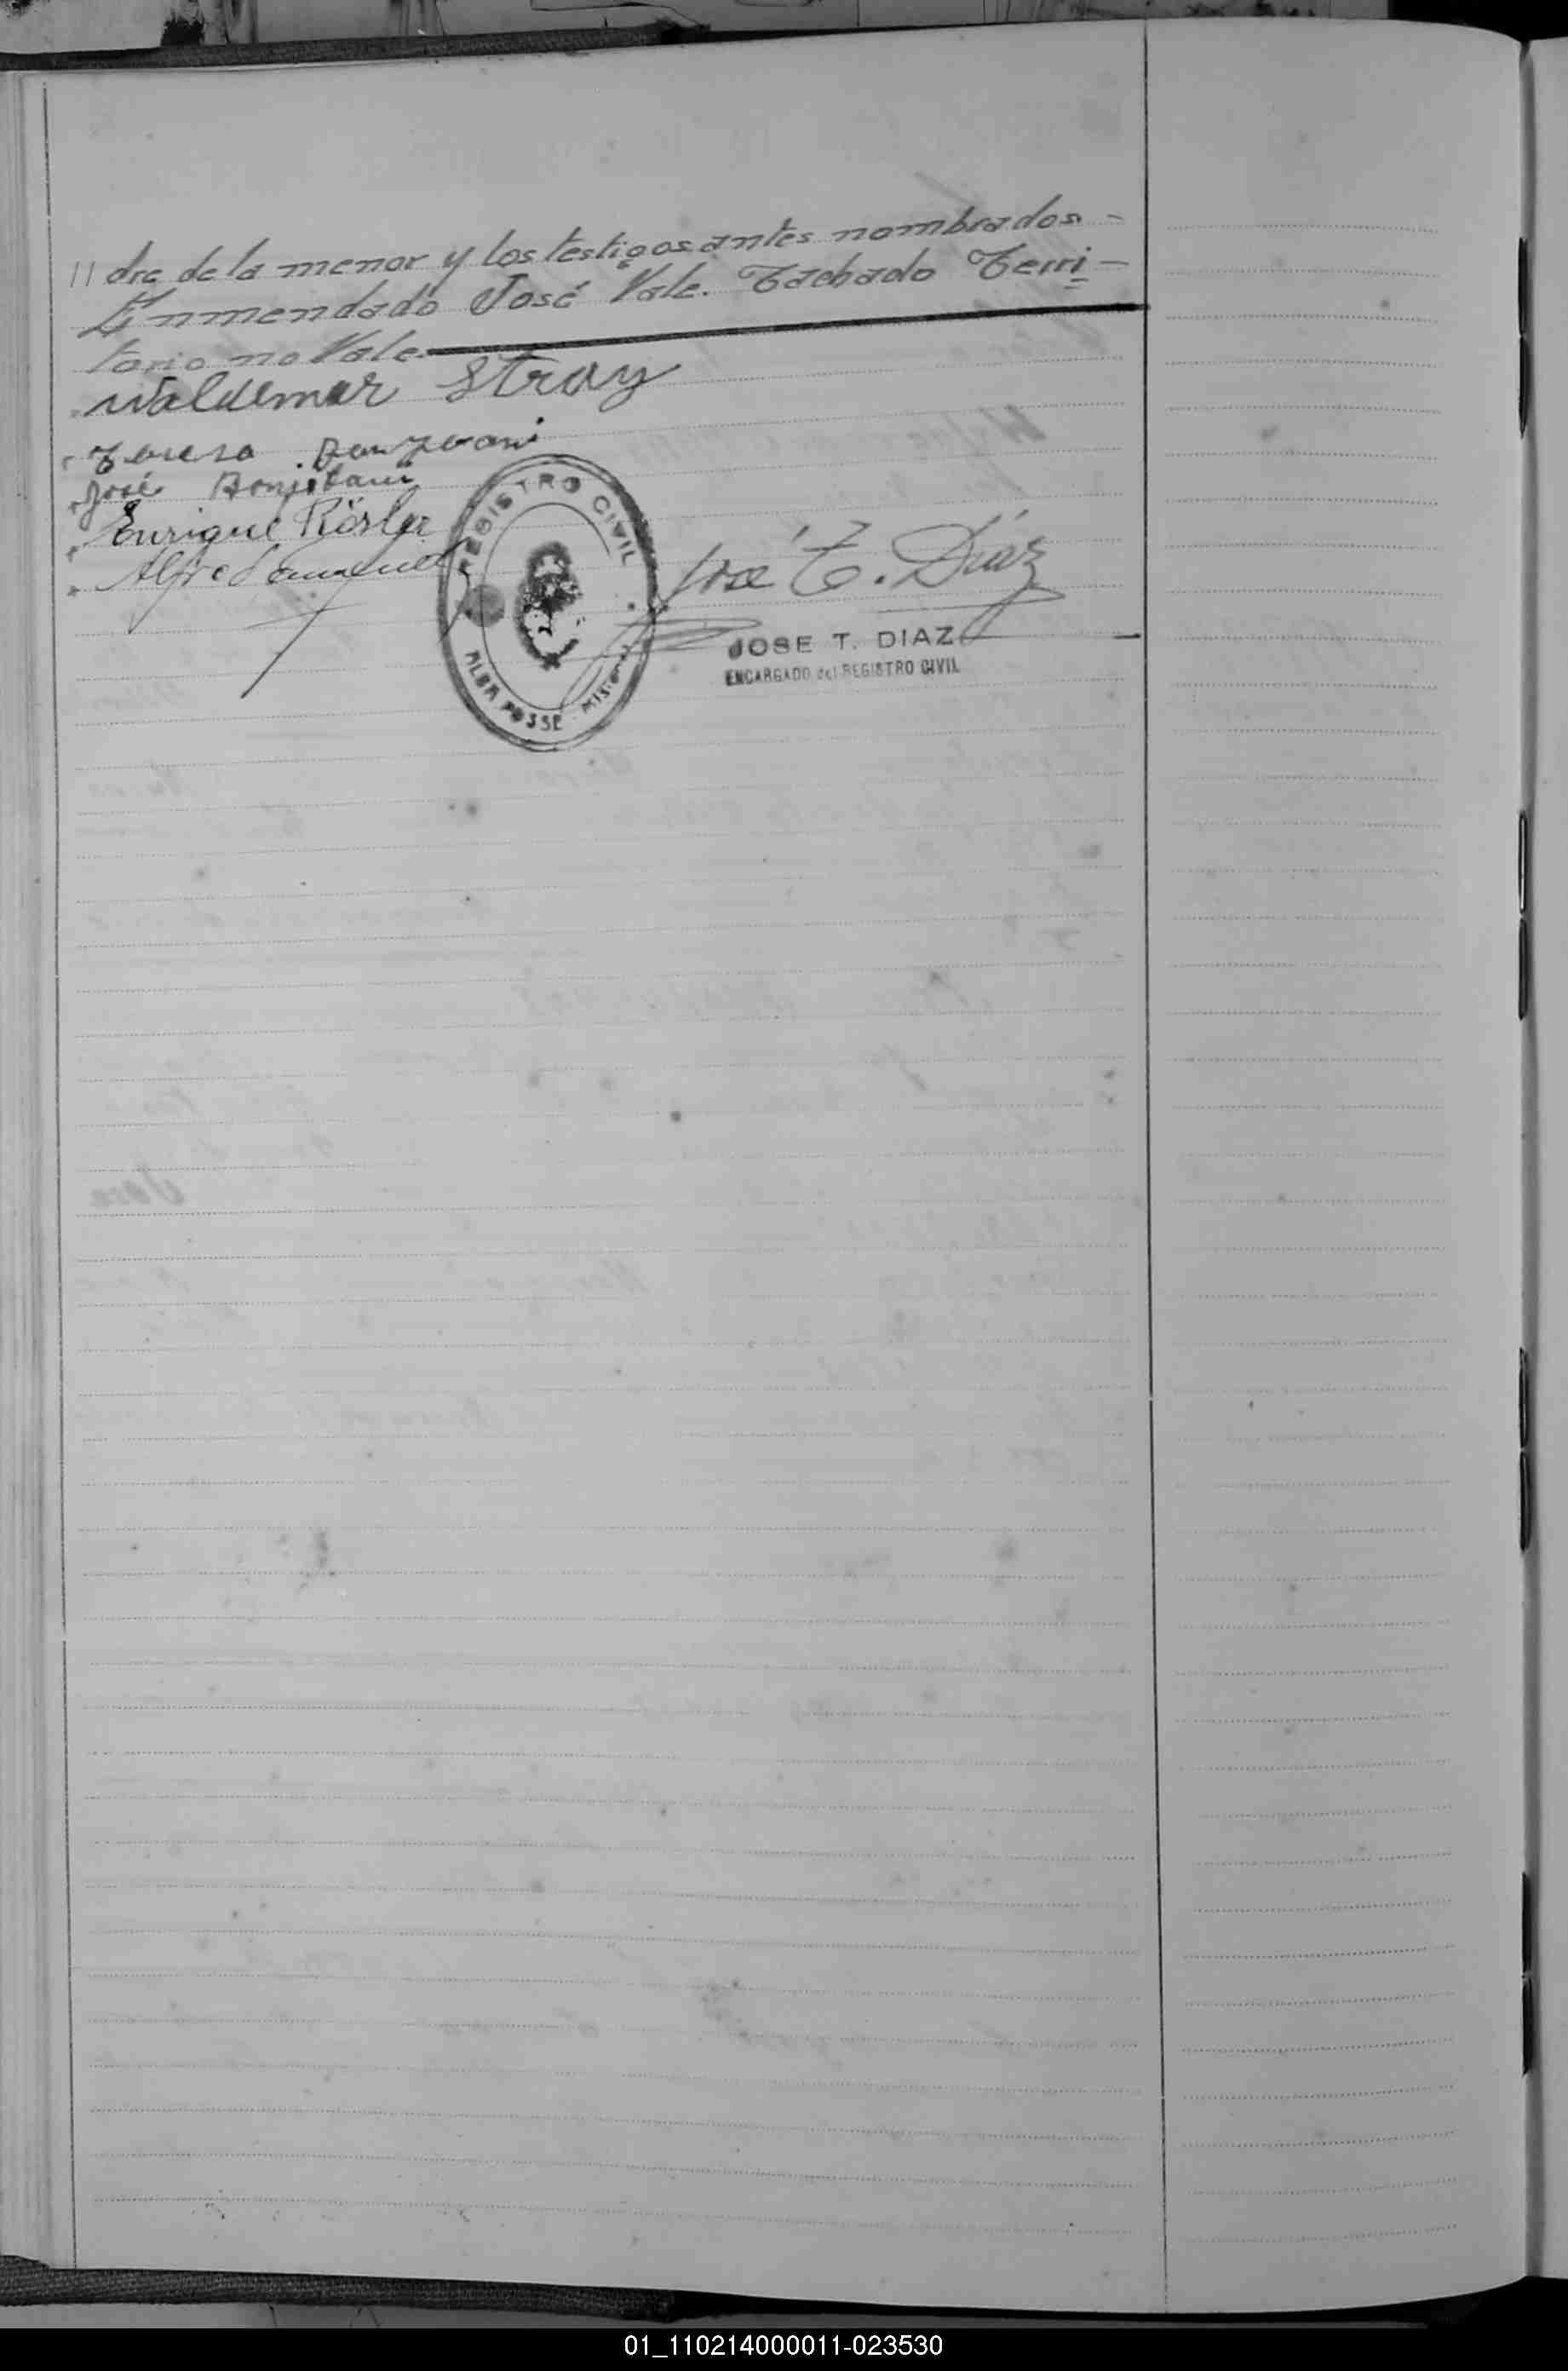 // dre de la menor y los testigos antes nombrados -
Enmendado José Vale. Tachado Terri-
torio no Vale
Waldemar Stray
Teresa
José
Enrique Rösler
REGISTRO CIVIL
ALBA POSSE - Misiones
José T. Díaz
JOSE T. DIAZ
ENCARGADO del REGISTRO CIVIL
01_110214000011-023530